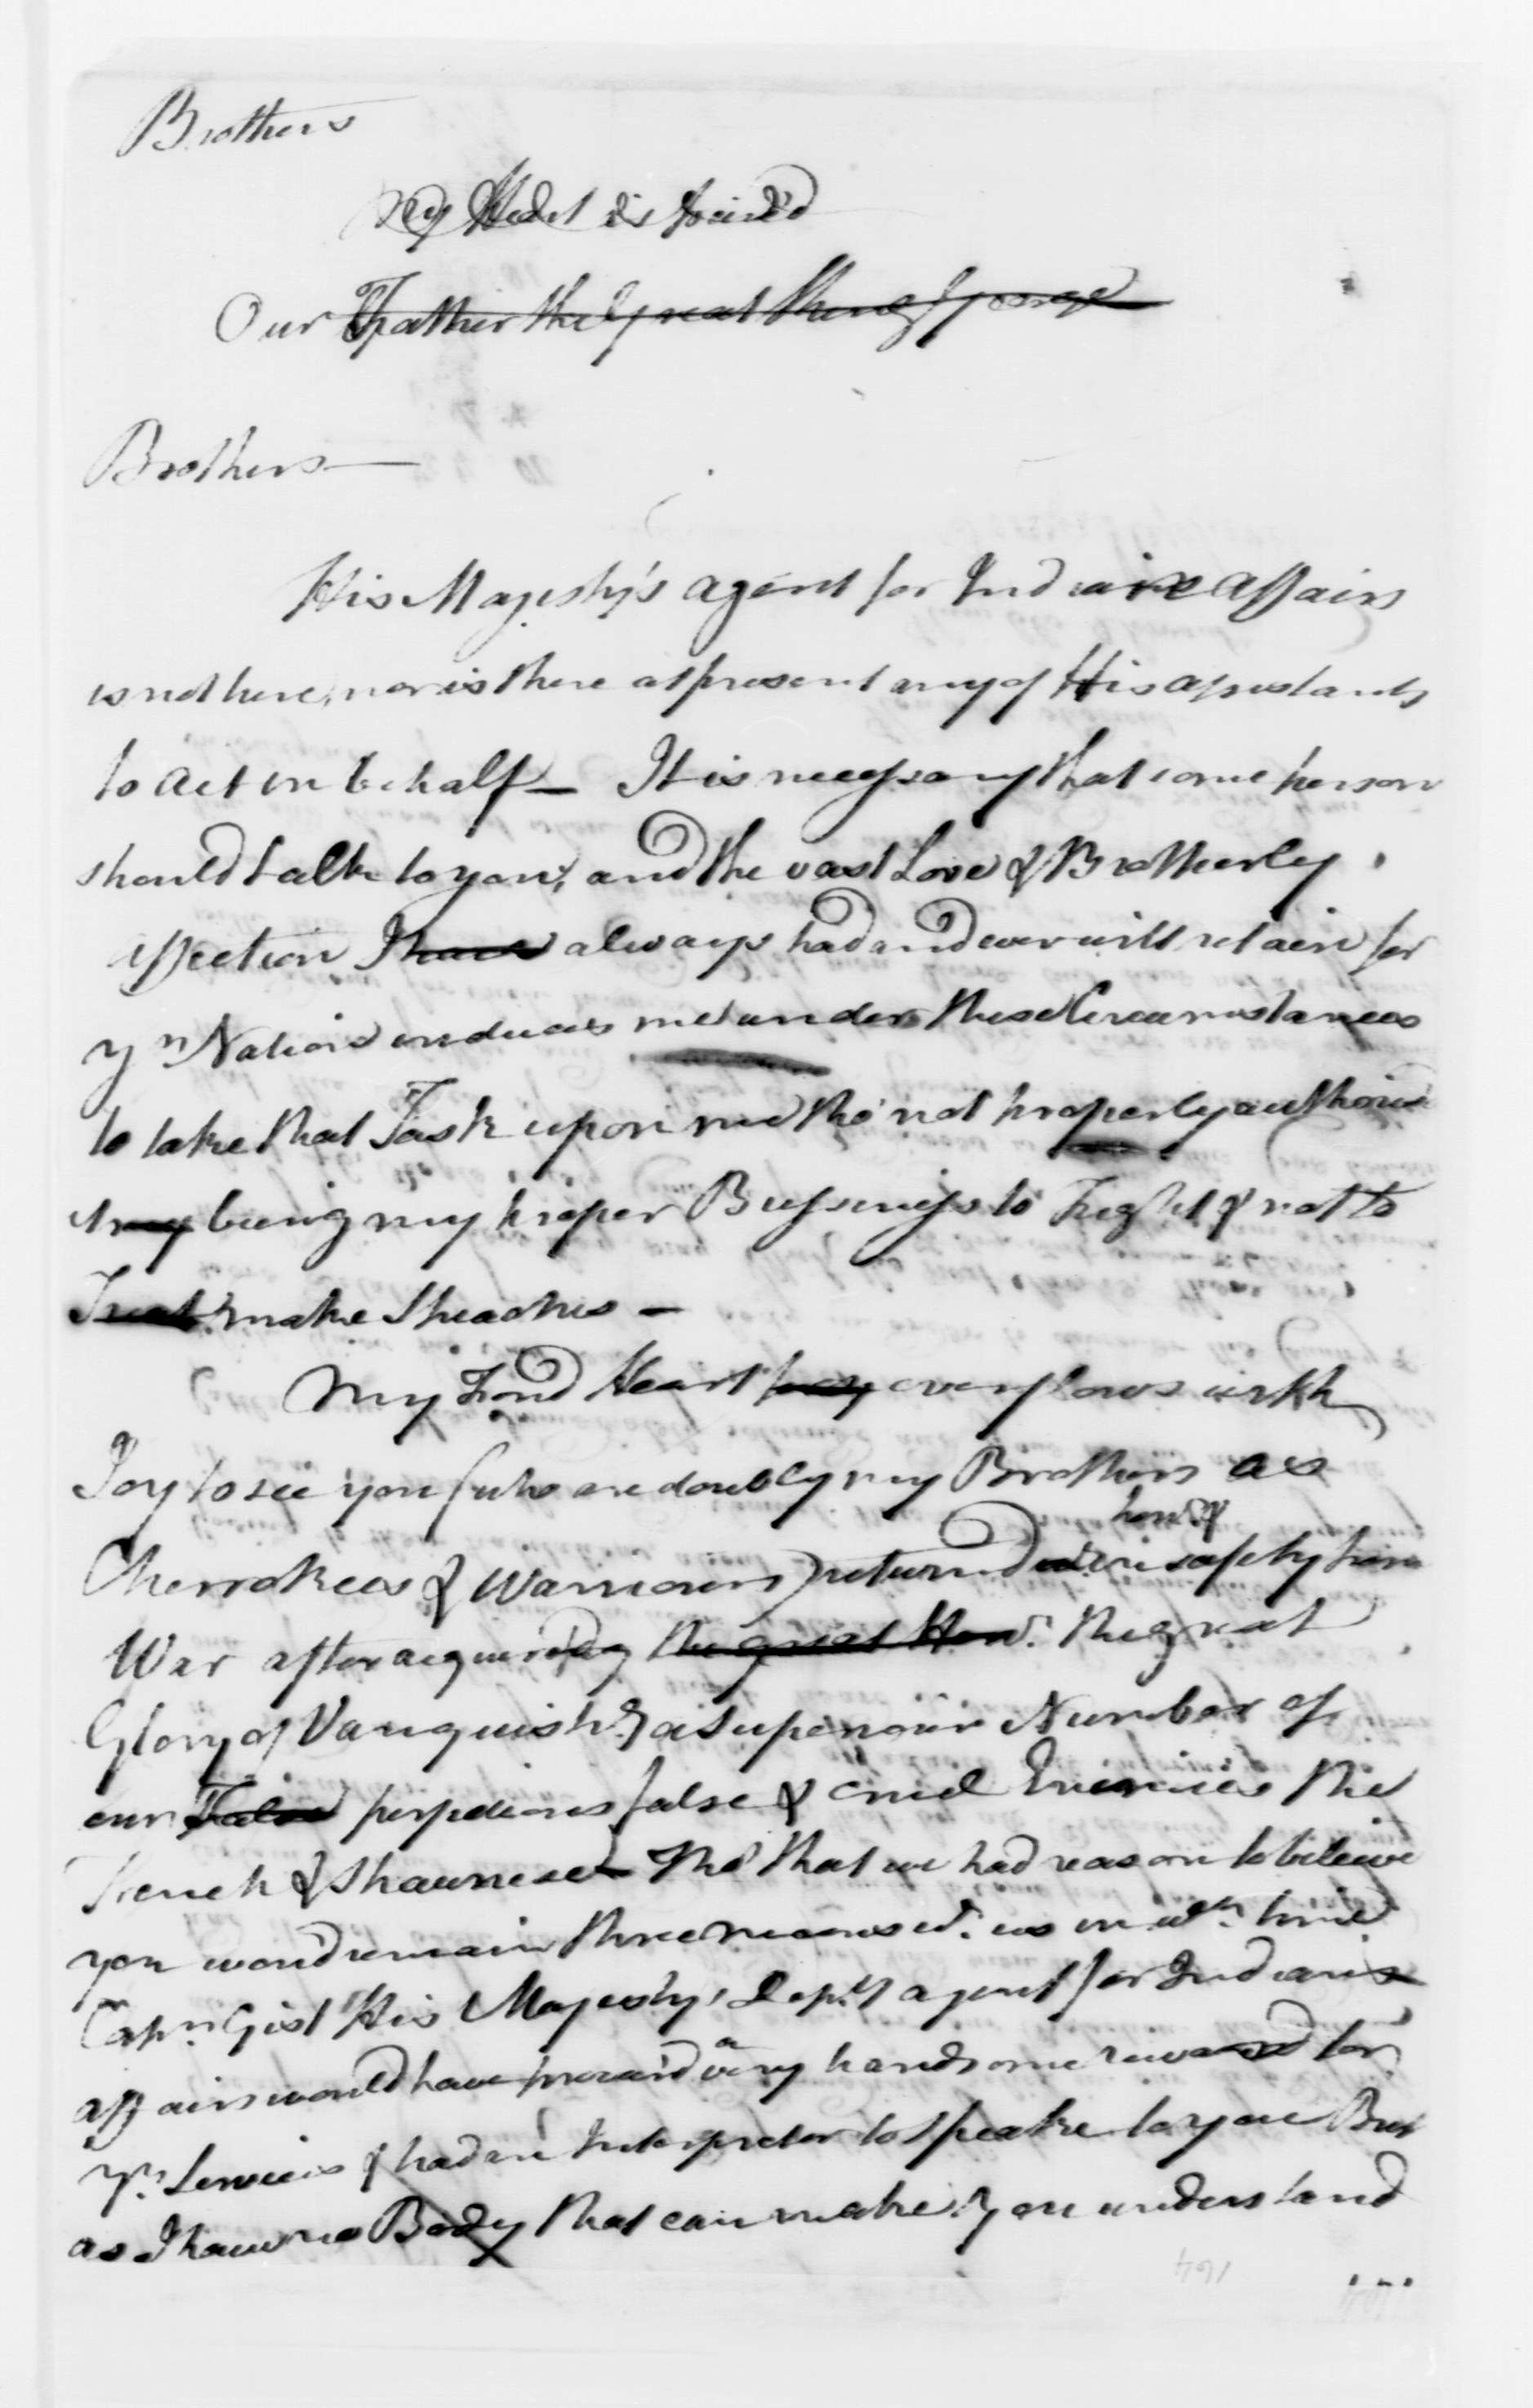 Brothers
My Heart is
Our Father the great King George
Brothers—
His Majesty's agent for Indian Affairs
is not here, nor is there at present any of His assistants
to act in behalf— It is necessary that some person
should talk to you, and the vast Love & Brotherly
affection I have always had and ever will retain for
yr Nation induces me under these Circumstances
to take that Task upon me tho' not properly authoris'd
it being my proper Bussiness to Fight & not to
Treat make Speaches—
My Fond Heart overflows with
Joy to see you (who are doubly my Brothers as
Cherrokees & Warriours) returnd in safety from
hon.r &
War after acquiring the great Hon.r the great
Glory of Vanquish.g a superiour Number of
our False perfedious false & cruel Enemies the
French & Shawnese— Tho' that we had reason to beleive
you would remain three moons wt. us in wch. time
Capn. Gist His Majesty's Depty agent for Indians
affairs would have procur'd a very handsome reward for
yr. Services & had an Interpreter to speake to you But
as I have no Body that can make you understand
164